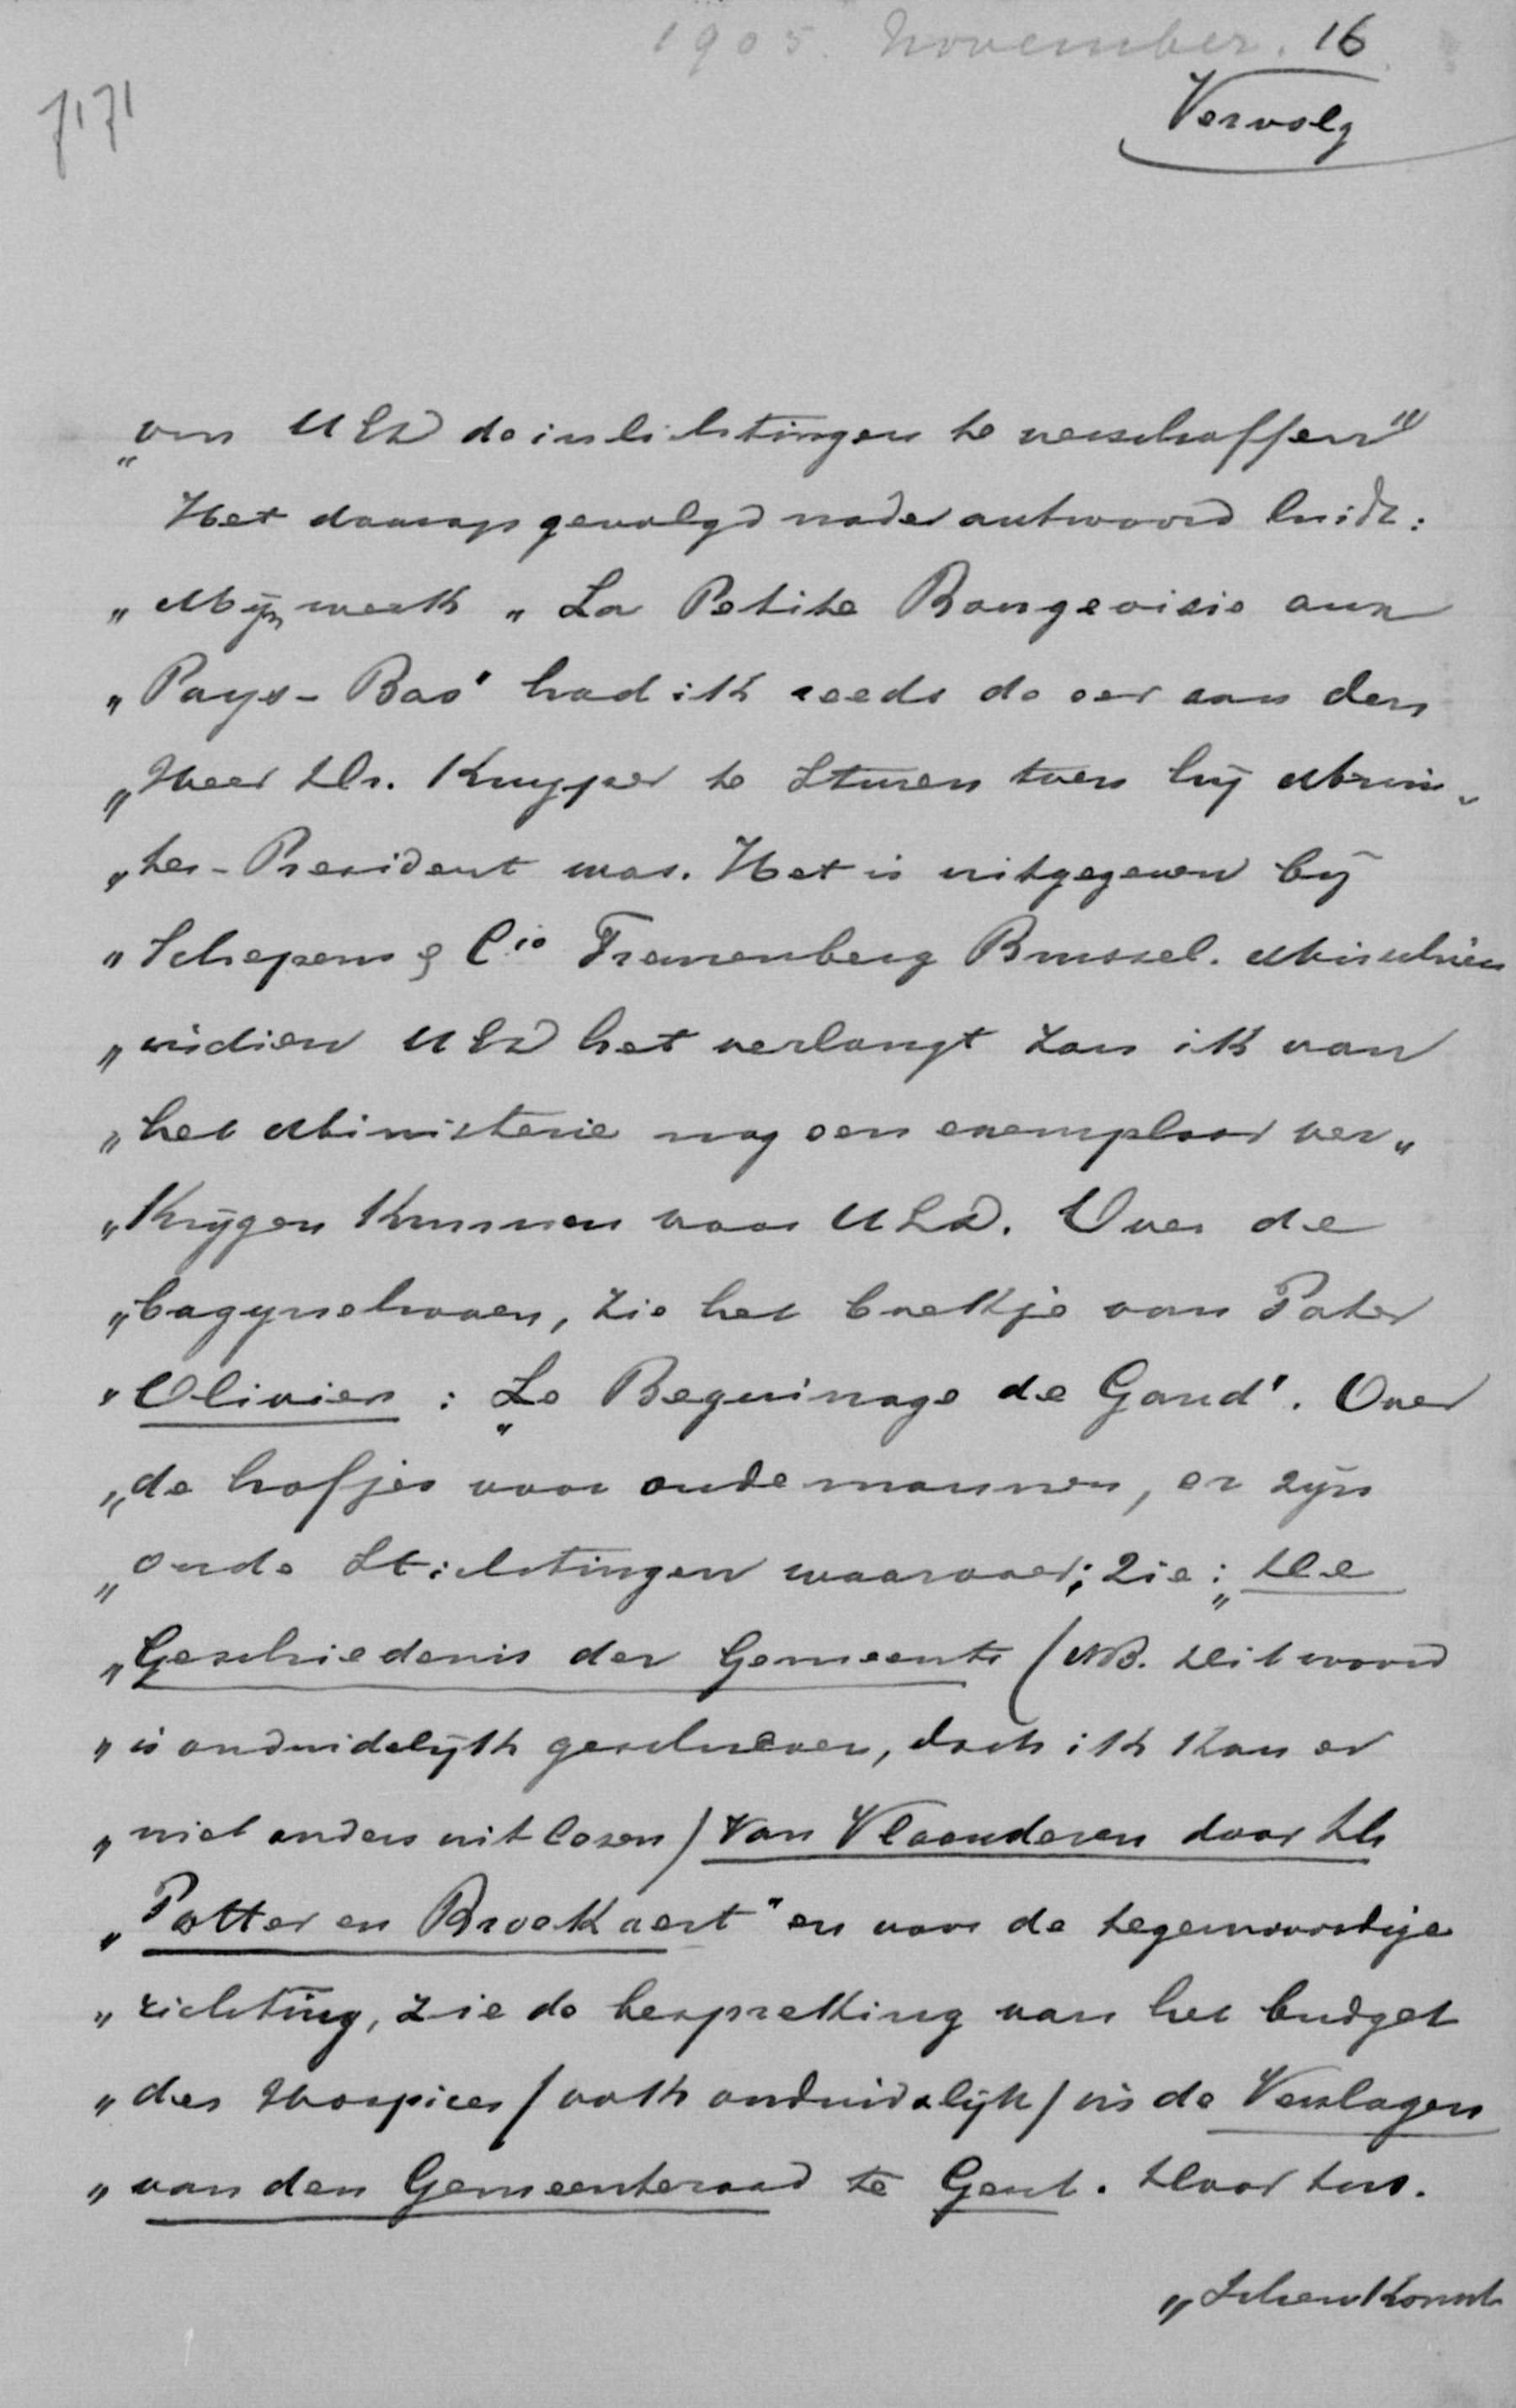 1905. November. 16
Vervolg
7171
„om UEd de inlichtingen te verschaffen"
Het daarop gevolgd nader antwoord luidt:
„Mijn werk „La Petite Bourgeoisie aux
„Pays-Bas" had ik reeds de eer aan den
„Heer Dr. Kuyper te sturen toen hij Minis„
„ter-President was. Het is uitgegeven bij
„Schepens & Cie Treurenberg Brussel. Misschien
„indien UEd het verlangt zou ik van
„het Ministerie nog een exemplaar ver„
„krijgen kunnen voor UEd. Over de
„bagynehoven, zie het boekje van Pater
„Olivier : „Le Beguinage de Gand". Over
„de hofjes voor oude mannen, er zijn
„oude Stichtingen waarover; Zie: „De
„Geschiedenis der Gemeente (NB. dit woord
„is onduidelijk geschreven, doch ik kan er
„niet anders uit lezen) Van Vlaanderen door De
„Potter en Broekaert" en voor de tegenwoordige
„richting, zie de bespreking van het budget
„des Hospices (ook onduidelijk) in de Verslagen
„van den Gemeenteraad te Gent. Daar tus.
„schenkomst